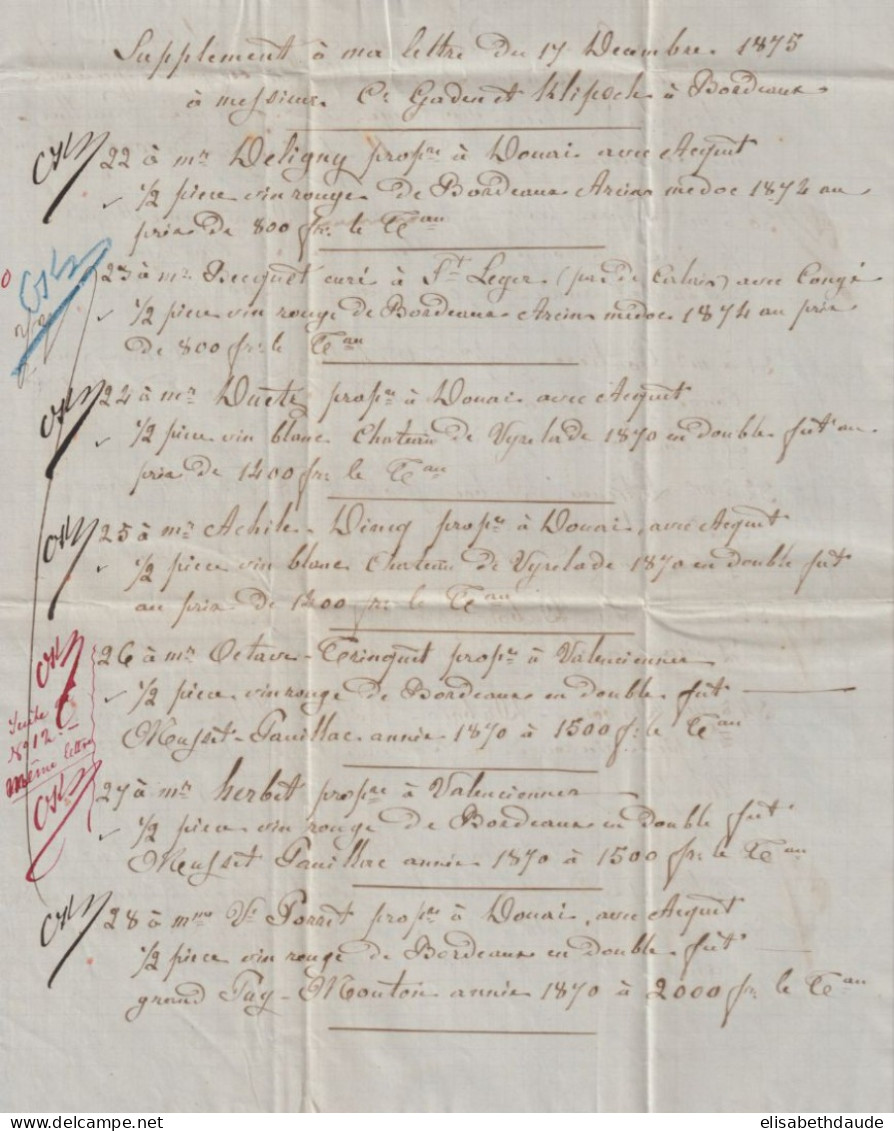 Supplement à ma lettre du 17 Decembre 1875
à messieurs Cs Gaden et Klipsch à Bordeaux
22 à mr Deligny propre à Douai avec Acquit
1/2 piece vin rouge de Bordeaux Arcins medoc 1874 au
prix de 800 fr: le Teau
23 à mr Becquet curé à St Leger (pas de Calais) avec Congé
1/2 piece vin rouge de Bordeaux Arcins medoc 1874 au prix
de 800 fr: le Teau
24 à mr propre à Douai avec Acquit
1/2 piece vin blanc Chateau de Vyrelade 1870 en double fût au
prix de 1400 fr: le Teau
25 à mr Achile Dincq propre à Douai, avec Acquit
1/2 piece vin blanc Chateau de Vyrelade 1870 en double fût
au prix de 1400 fr: le Teau
26 à mr Octave Tringuet propre à Valenciennes
1/2 piece vin rouge de Bordeaux en double fût
Musset-Pauillac annie 1870 à 1500 fr: le Teau
Suite
No 12
même lettre
27 à mr herbet propre à Valenciennes
1/2 piece vin rouge de Bordeaux en double fût
Musset Pauillac annie 1870 à 1500 fr: le Teau
28 à mme Ve propre à Douai, avec Acquit
1/2 piece vin rouge de Bordeaux en double fût
grand Puy-Mouton annie 1870 à 2000 fr: le Teau
elisabethdaude